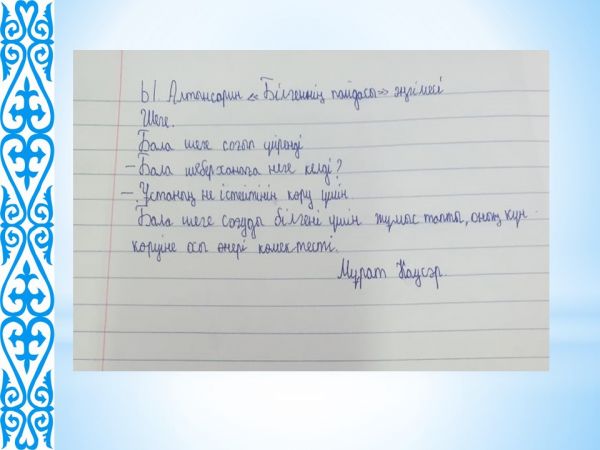 Ы. Алтынсарин «Білгеннің пайдасы» әңгімесі
Шеге.
Бала шеге соғып үйренді
– Бала шеберханаға неге келді?
– Ұстаның не істейтінін көру үшін.
Бала шеге соғуды білгені үшін жұмыс тапты, оның күн
көруіне осы өнері көмектесті.
Мұрат Каусәр.